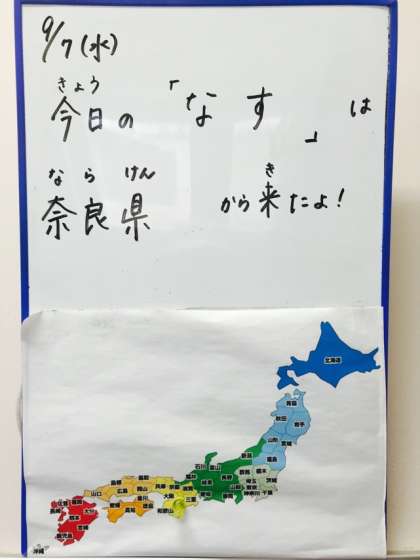 9/7(水)
きょう
今日の「なす」は
なら けん
奈良県
き
から来たよ!
北海道
青森
秋田
岩手
山形
宮城
福島
新潟
石川
富山
福井
長野
群馬
栃木
茨城
埼玉
東京
千葉
神奈川
岐阜
愛知
静岡
滋賀
三重
京都
大阪
兵庫
和歌山
鳥取
島根
岡山
広島
山口
香川
徳島
愛媛
高知
福岡
佐賀
長崎
大分
熊本
宮崎
鹿児島
沖縄